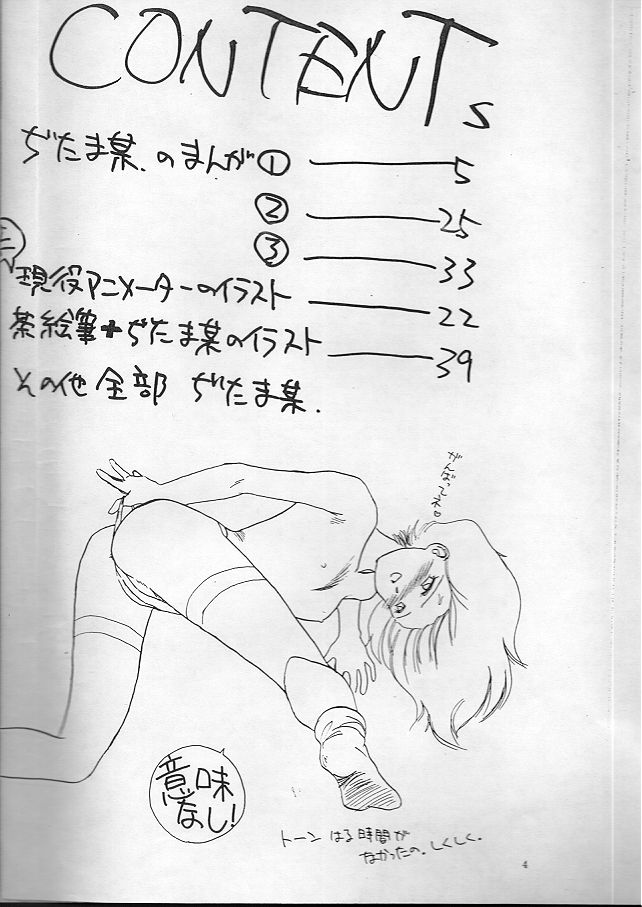 CONTENTS
ぢたま某.のまんが① 5
② 25
③ 33
現役アニメーターのイラスト 22
茶絵筆+ぢたま某のイラスト 39
その他全部 ぢたま某.
がんばってネ♡
意味なし!
トーンはる時間が
なかったの。しくしく。
4